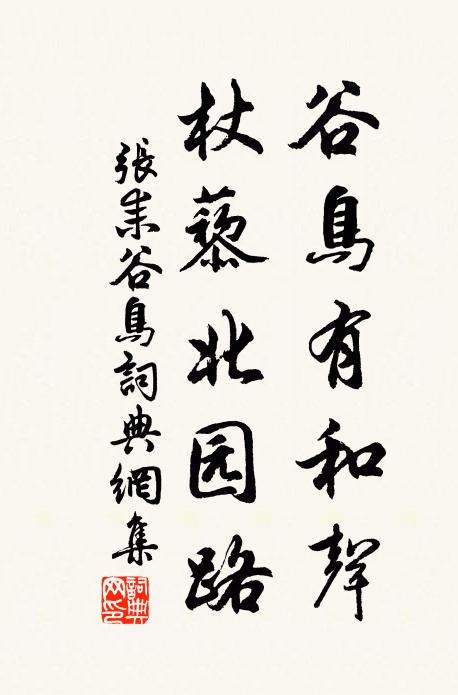 谷鳥有和聲
杖藜北园路
張耒谷鳥詞典網集
詞典網印